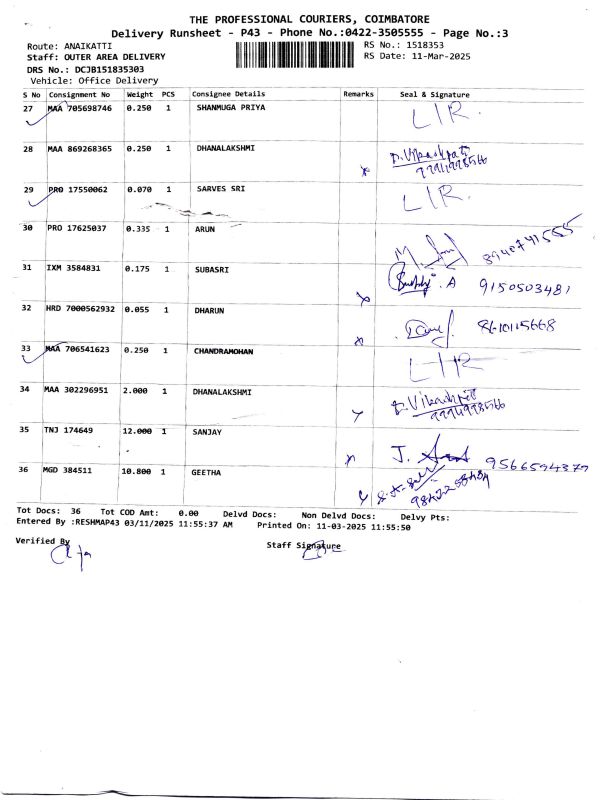 THE PROFESSIONAL COURIERS, COIMBATORE
Delivery Runsheet - P43 - Phone No.:0422-3505555 - Page No.:3
Route: ANAIKATTI RS No.: 1518353
Staff: OUTER AREA DELIVERY RS Date: 11-Mar-2025
DRS No.: DCJB151835303
Vehicle: Office Delivery
S No Consignment No Weight PCS Consignee Details Remarks Seal & Signature
27 MAA 705698746 0.250 1 SHANMUGA PRIYA LIR.
28 MAA 869268365 0.250 1 DHANALAKSHMI
29 PRO 17550062 0.070 1 SARVES SRI LIR.
30 PRO 17625037 0.335 1 ARUN 8940741555
31 IXM 3584831 0.175 1 SUBASRI 9150503481
32 HRD 7000562932 0.055 1 DHARUN 8610115668
33 MAA 706541623 0.250 1 CHANDRAMOHAN LIR
34 MAA 302296951 2.000 1 DHANALAKSHMI
35 TNJ 174649 12.000 1 SANJAY J. 9566594379
36 MGD 384511 10.800 1 GEETHA
Tot Docs: 36 Tot COD Amt: 0.00 Delvd Docs: Non Delvd Docs: Delvy Pts:
Entered By :RESHMAP43 03/11/2025 11:55:37 AM Printed On: 11-03-2025 11:55:50
Verified By Staff Signature